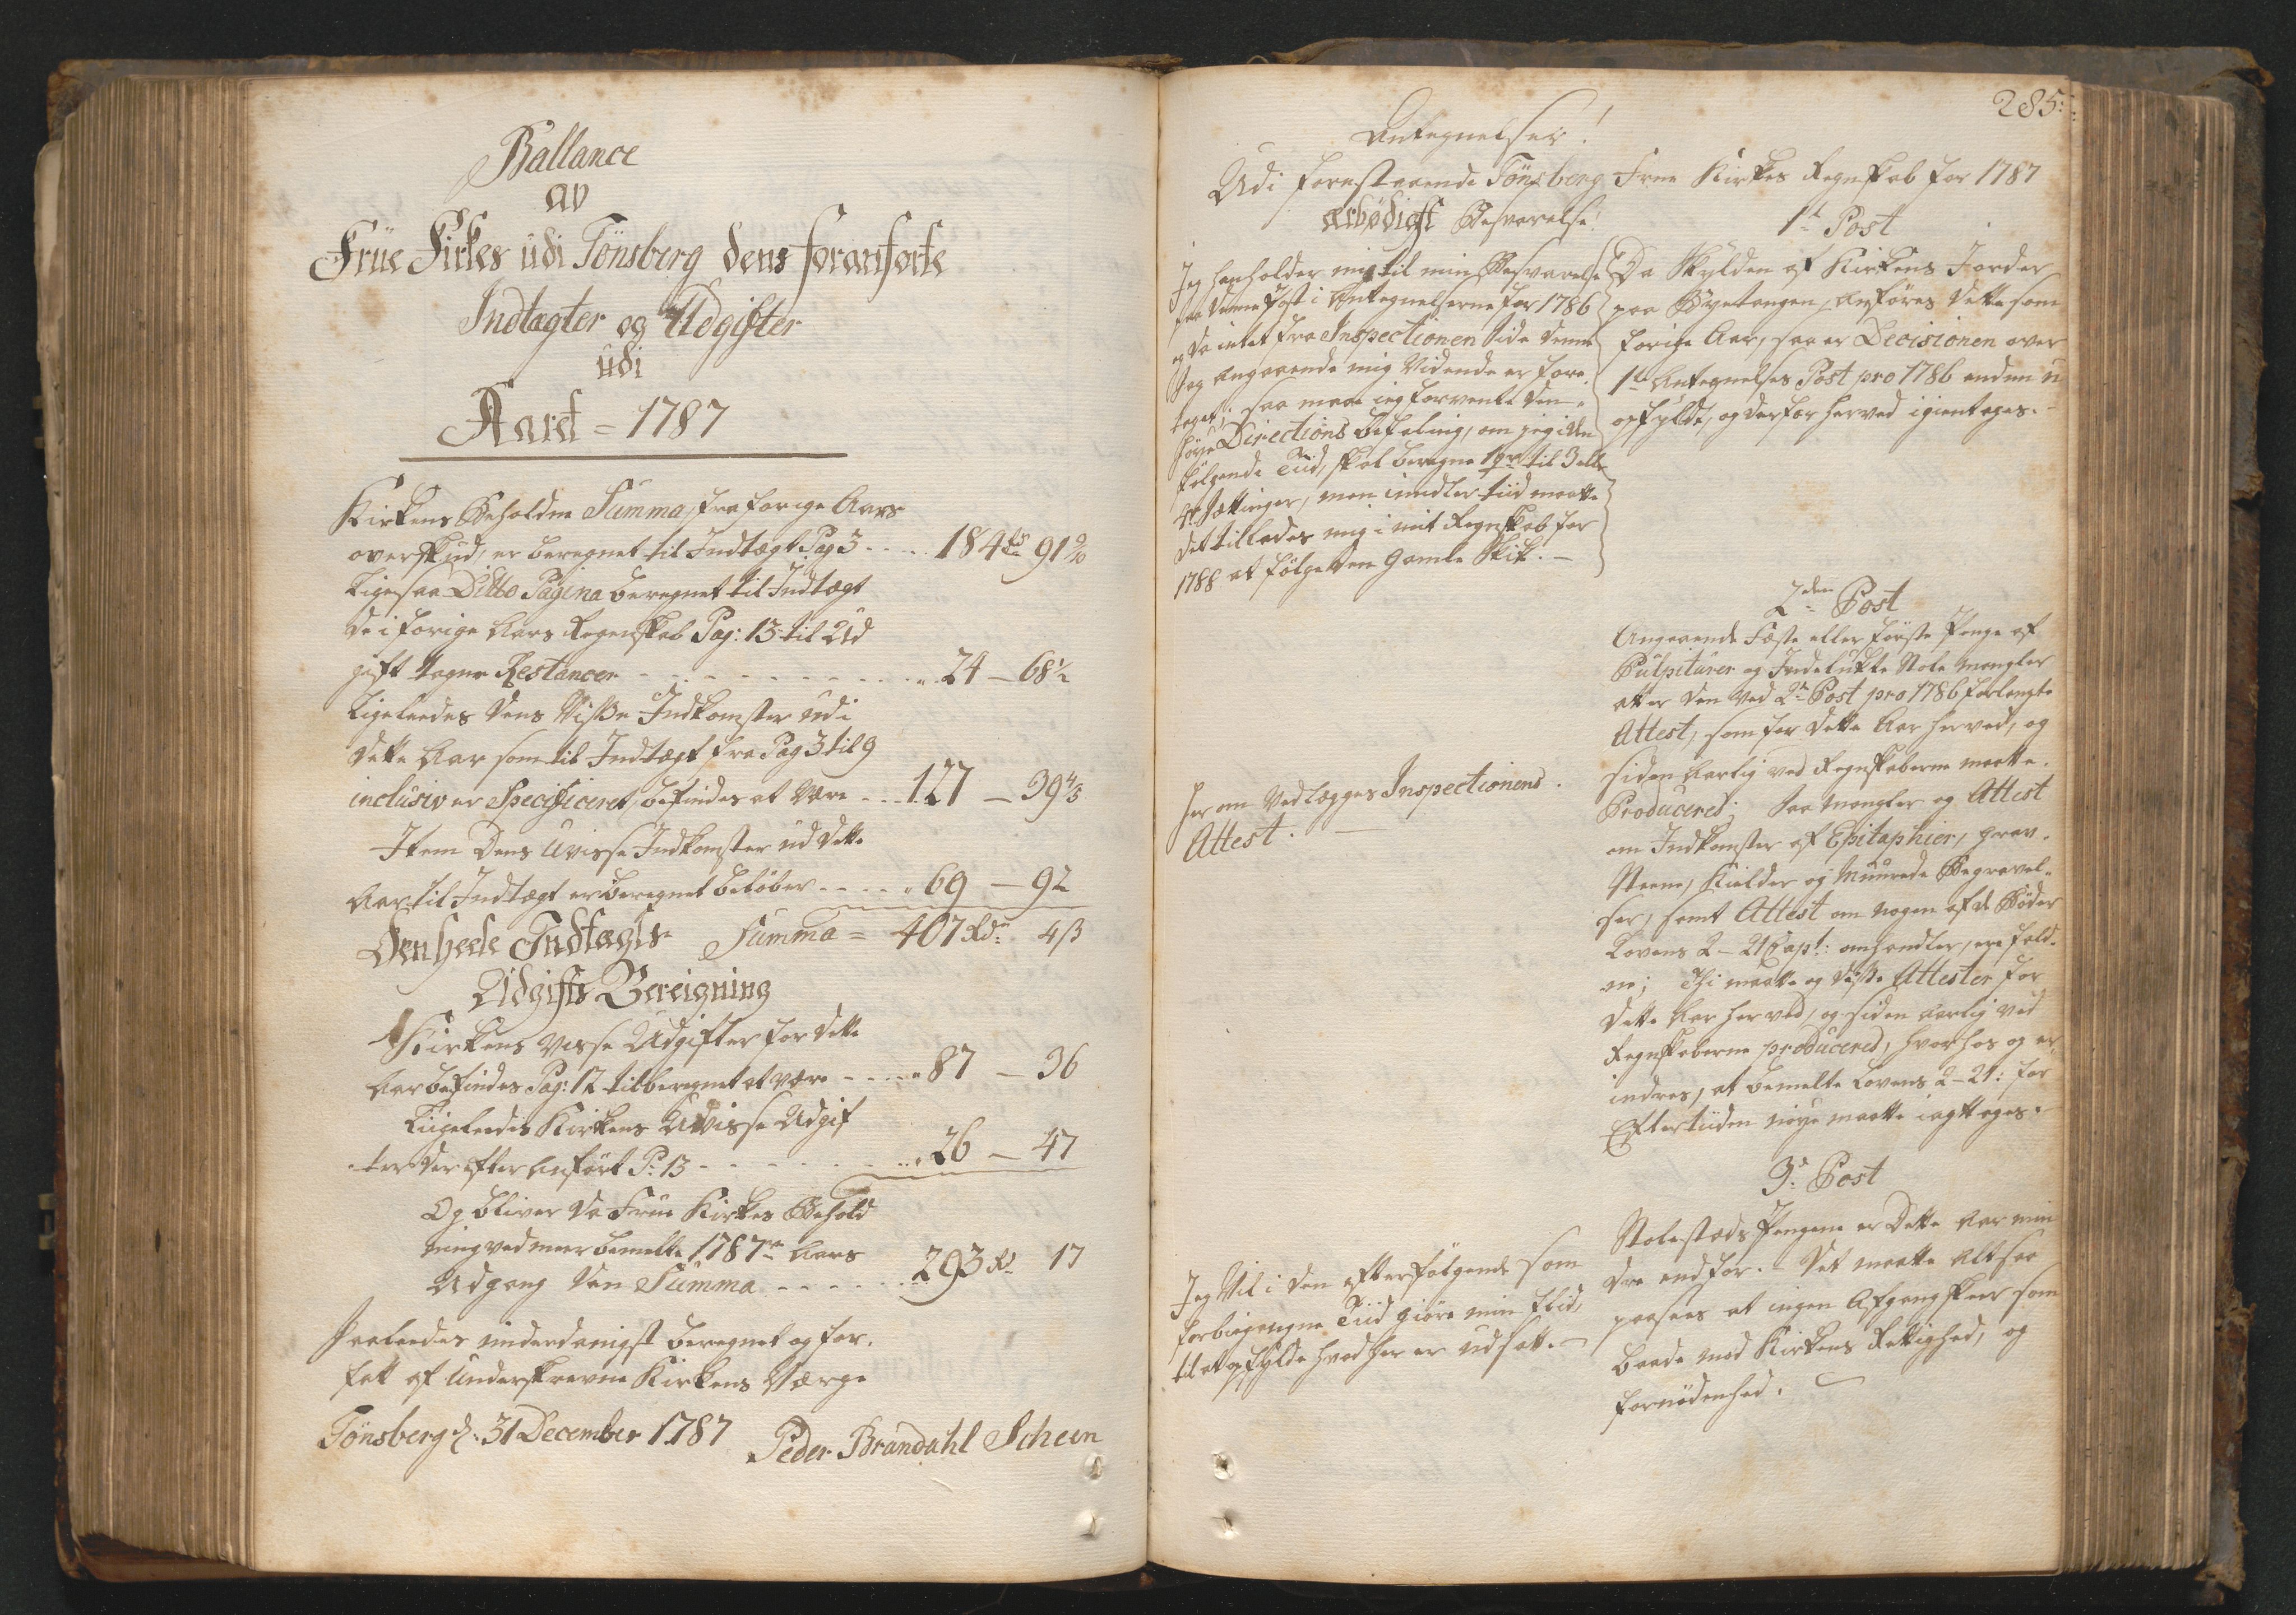 Ballance
av
Früe Kirkes udi Tönsberg dens foranförte
Indtægter og Udgifter
udi
Aaret = 1787
Kirkens Beholdne Summa, fra forige Aars
overskud, er beregnet til Indtægt Pag 3 - - - - 184 rd 91
Ligesaa Ditto Pagina beregnet til Indtægt
de i forige Aars Regnskab Pag: 13 til Ud
gift tagne Restancer - - - - - - 24 - 68½
Ligeledes dens Visse Indkomster udi
dette Aar som til Indtægt fra Pag 3 til 9
inclusiv er Specificeret, befindes at være - - 127 - 39 4/5
Item Dens Uvisse Indkomster ud dette
Aar til Indtægt er beregnet beløber - - - - 69 - 92
Den heele Indtægts Summa = 407 Rdr 4 ß
Udgifts Bereigning
Kirkens Visse Udgifter for dette
Aar befindes Pag: 12 til beregnet at være - - - - 87 - 36
Liigeleedes Kirkens Uvisse Udgif
ter derefter Anført P: 13 - - - - 26 - 47
Og bliver da Frue Kirkes Behold
ning ved meer bemelte 1787de Aars
Udgang den Summa - - - - - 293 Rd 17
Saaleedes underdanigst beregnet og for-
fatt af Underskrevne Kirkens Værge
Tönsberg d: 31 December 1787 Peder Brandahl Scheen
285:
Antegnelser!
Udi forestaaende Tönsberg Frue Kirkes Regnskab for 1787
ærbödigst Besvarelse!
Jeg henholder mig til min Besvarelse
paa denne Post i Antegnelserne for 1786
og da intet fra Inspectionen Side denne
Sag angaaende mig Vidende er fore-
taget; saa maae jeg forvente den
høye Directions befaling, om jeg i den
følgende Tiid, skal beregne 1 qr til 3 eller
4 Sættinger, men imidlertiid maatte
det tillades mig i mit Regnskab for
1788 at følge den Gamle Skik. -
Her om Vedlægges Inspectionens
Attest. -
Jeg Vil i den efterfølgende som
forbigangne Tiid giøre min flid,
til at opfylde hvad her er udsatt. -
1te Post
Da Skylden af Kirkens Jorder
paa Byetangen, Anføres dette som
forige Aar, saa er Decisionen over
1te Antegnelses Post pro 1786 endnu u
opfyldt, og derfor herved igientages. -
2den Post
Angaaende Fæste eller første Penge af
Pulpiturer og Indelukte Stole mangler
atter den ved 2de Post pro 1786 forlangte
Attest, som for dette Aar herved, og
siden Aarlig ved Regnskaberne maatte
Produceres; Saa mangler og Attest
om Indkomster af Epitaphier, Grav-
Steene, Kielder og Muurede Begravel-
ser, samt Attest om nogen af de Bøder
Lovens 2 - 21 Capt: omhandler, ere fald-
ne; Thi maatte og disse Attester for
dette Aar herved, og siden Aarlig ved
Regnskaberne produceres, hvorhos og er-
indres, at bemelte Lovens 2 - 21: for
Eftertiiden nøye maatte iagttages.
3de Post
Stolestæds Pengene er dette Aar min
dre end før. - Det maatte Altsaa
paasees at ingen Afgang skeer som
baade mod Kirkens Rettighed, og
fornödenhed. -